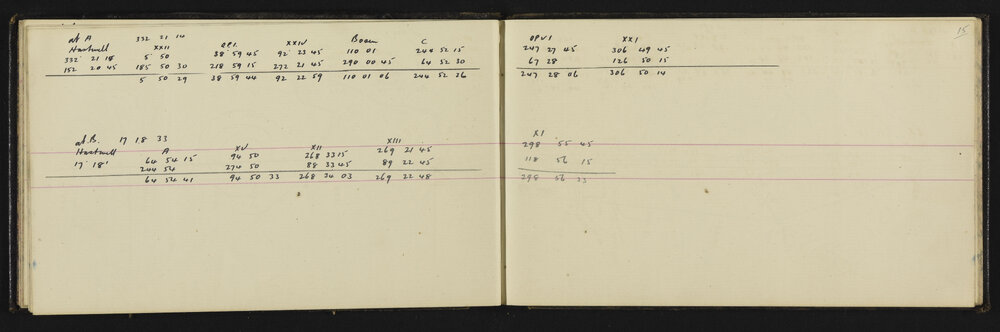 at A 332 21 14
Hartwell XXII OP1. XXIV Boom C
332 21 18 5 50 38 59 45 92 23 45 110 01 244 52 15
152 20 45 185 50 30 218 59 15 272 21 45 290 00 45 64 52 30
5 50 29 38 59 44 92 22 59 110 01 06 244 52 36
at B. 17 18 33
Hartwell A XV XII XIII
17 18' 64 54 15 94 50 268 33 15 269 21 45
244 54 274 50 88 33 45 89 22 45
64 54 41 94 50 33 268 34 03 269 22 48
15
OPV1 XXI
247 27 45 306 49 45
67 28 126 50 15
247 28 06 306 50 14
XI
298 55 45
118 56 15
298 56 33